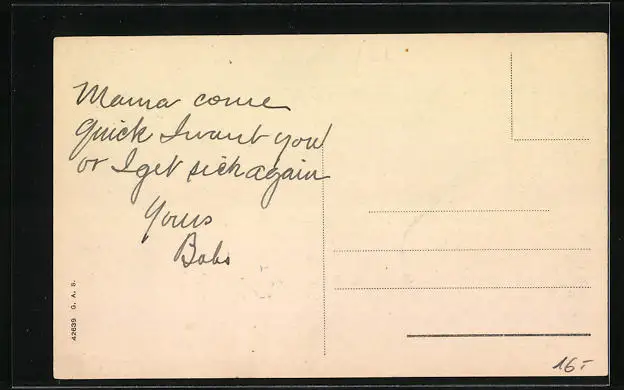 Mama come
quick I want you
or I get sick again
Yours
Bobs
42639 G. A. S.
16.-